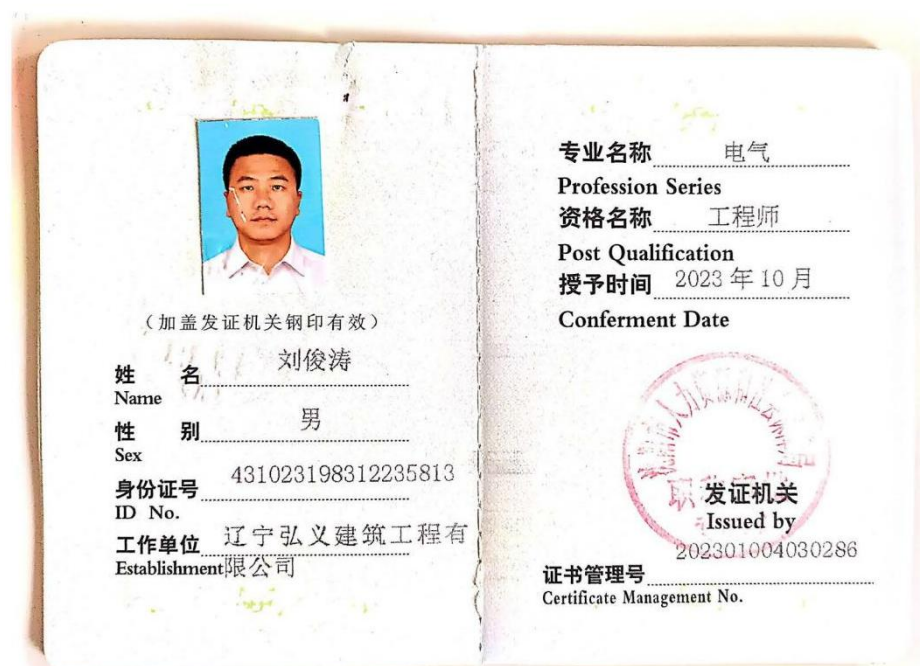 (加盖发证机关钢印有效)
姓 名 刘俊涛
Name
性 别 男
Sex
身份证号 431023198312235813
ID No.
工作单位 辽宁弘义建筑工程有
Establishment 限公司
专业名称 电气
Profession Series
资格名称 工程师
Post Qualification
授予时间 2023 年 10 月
Conferment Date
发证机关
Issued by
202301004030286
证书管理号
Certificate Management No.